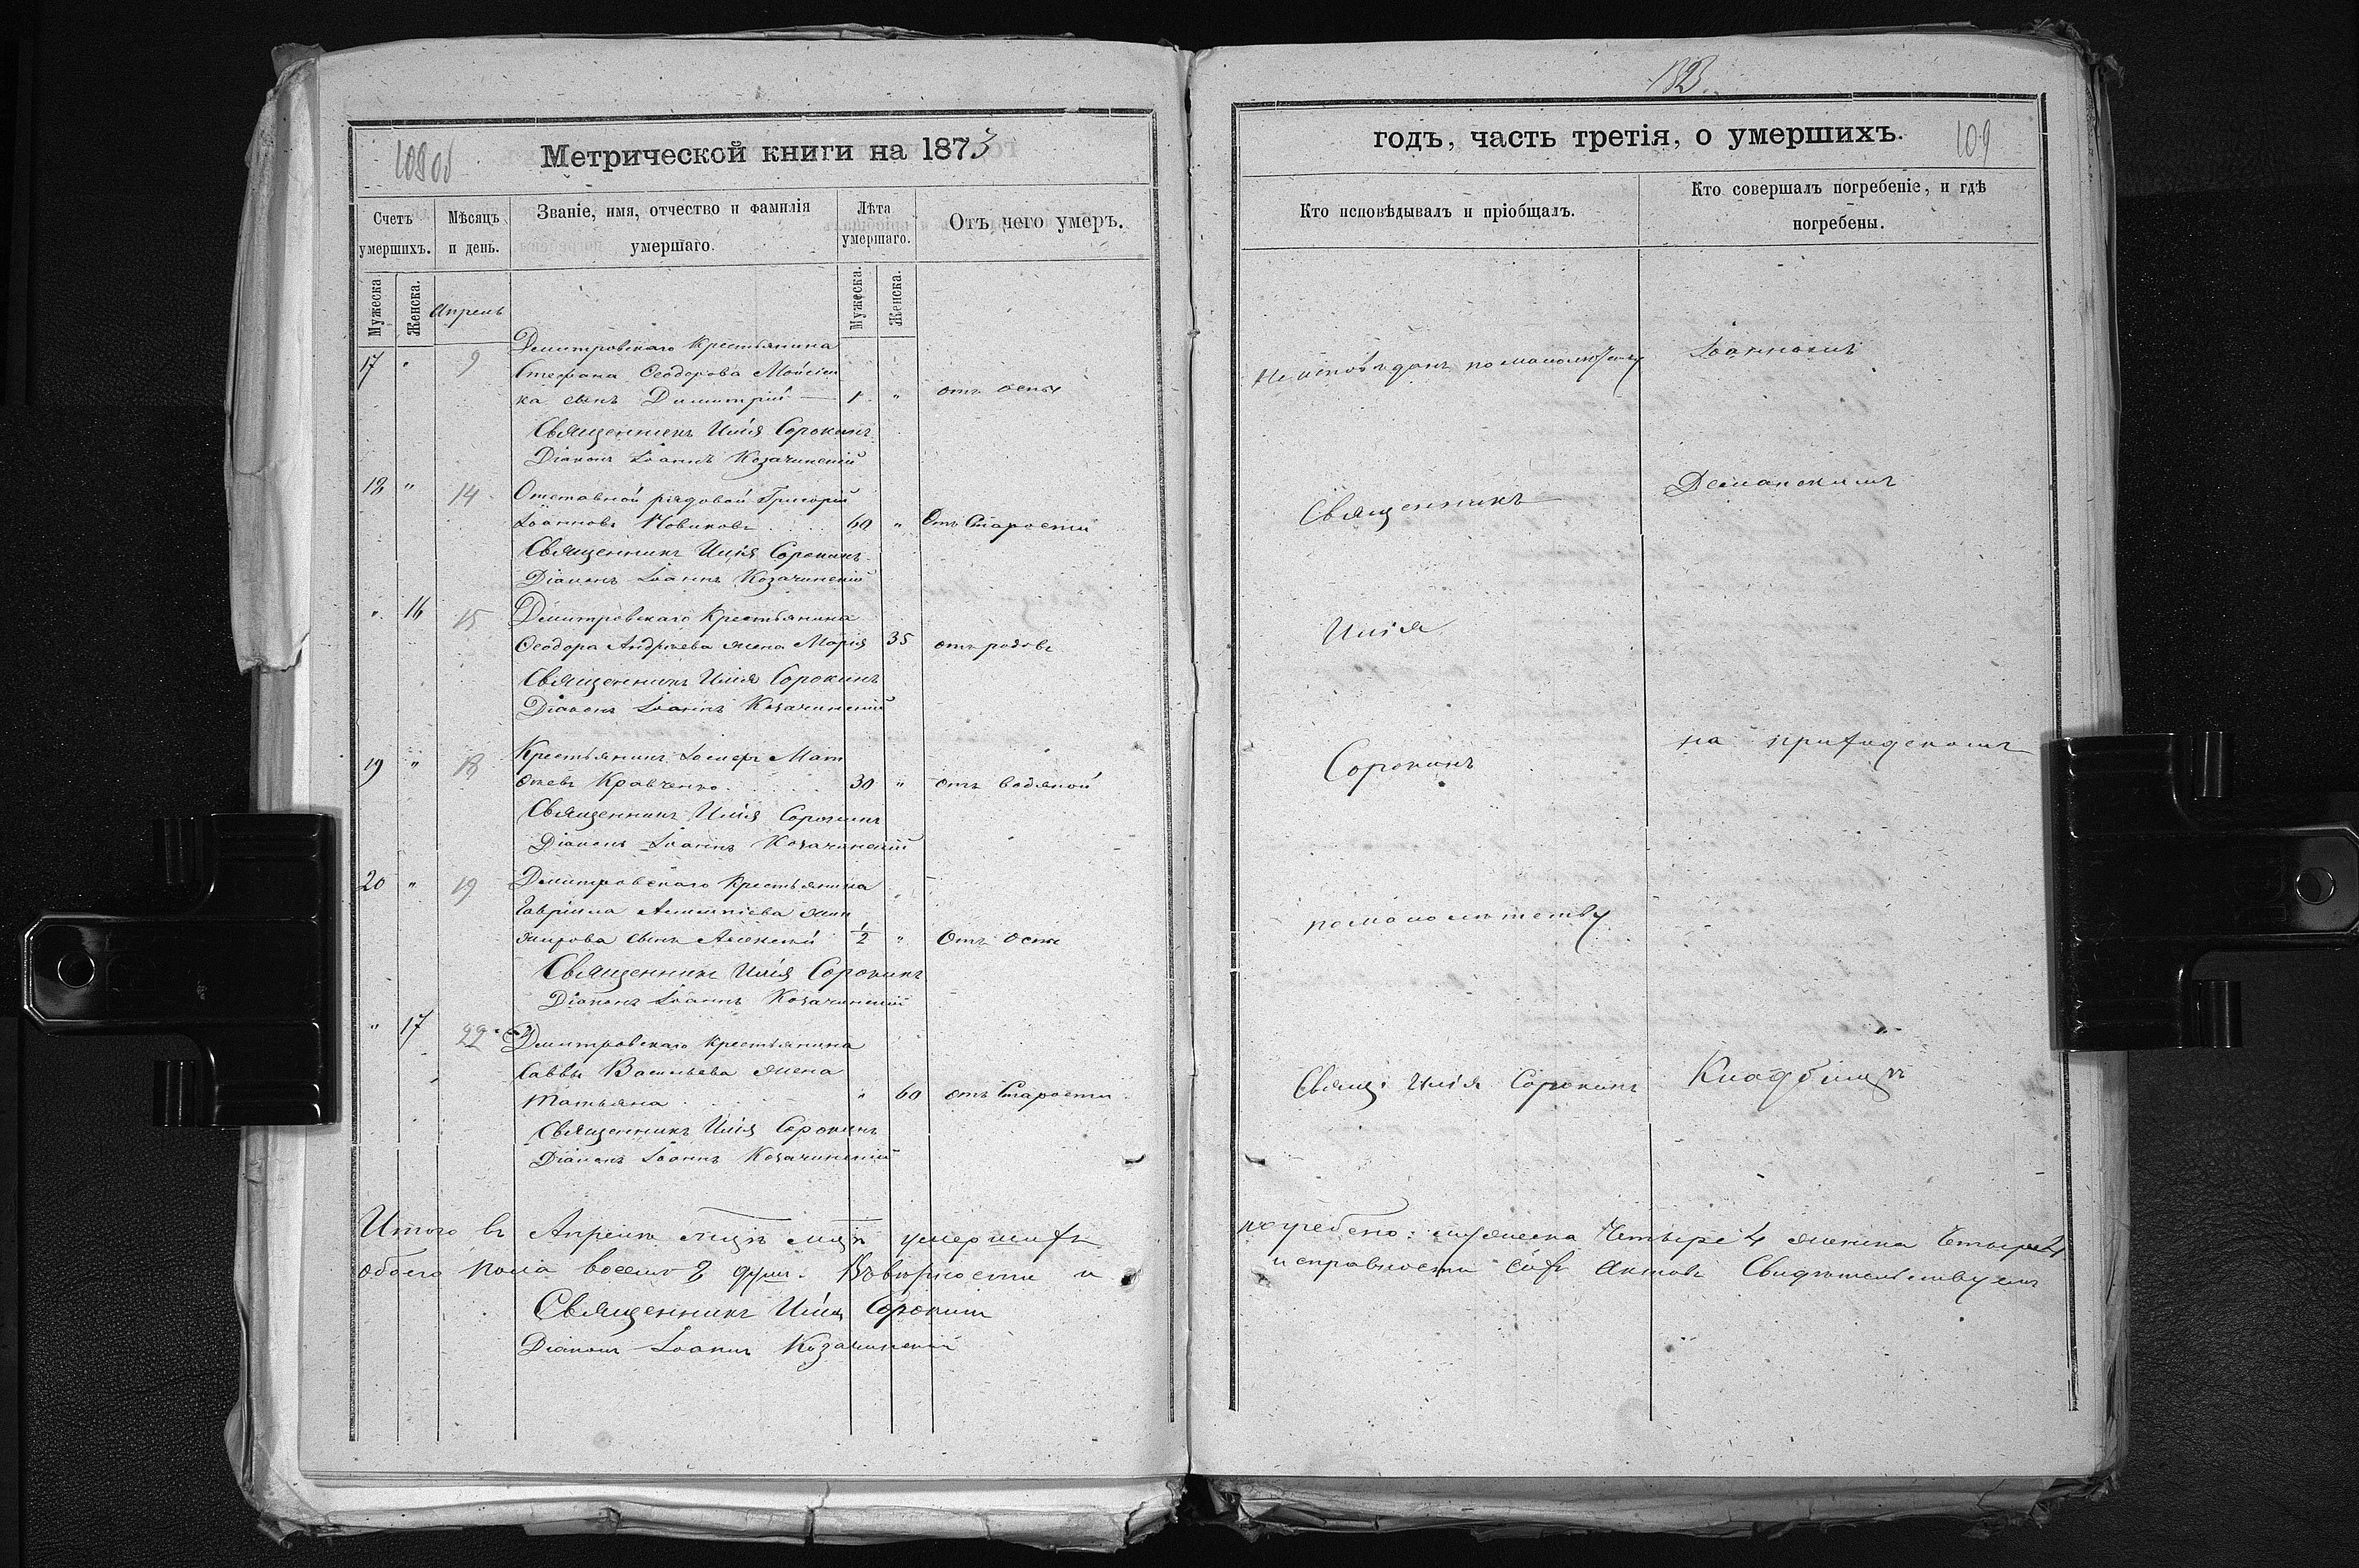 Метрической книги на 1873
Счетъ умершихъ.
Мѣсяцъ и день.
Званіе, имя, отчество и фамилія умершаго.
Лѣта умершаго.
Отъ чего умеръ.
Мужеска
Женска.
Апрель
Мужеска.
Женска.
17 " 9 Дмитровскаго Крестьянина
Стефана Ѳеодорова Мойсіен
ка сынъ Димитрій 1 " отъ оспы
Священникъ Илія Сорокинъ
Діаконъ Іоаннъ Козачинскій
18 " 14 Отставной рядовой Григорій
Іоанновъ Новиковъ 60 " Отъ Старости
Священникъ Илія Сорокинъ
Діаконъ Іоаннъ Козачинскій
" 16 15 Дмитровскаго Крестьянина
Ѳеодора Андрѣева жена Марія 35 отъ родовъ
Священникъ Илія Сорокинъ
Діаконъ Іоаннъ Козачинскій
19 " 18 Крестьянинъ Іосифъ Мат
ѳеевъ Кравченко 30 " отъ водяной
Священникъ Илія Сорокинъ
Діаконъ Іоаннъ Козачинскій
20 " 19 Дмитровскаго Крестьянина
Гавріила
сынъ Алексѣй 1/2 " Отъ Оспы
Священникъ Илія Сорокинъ
Діаконъ Іоаннъ Козачинскій
" 17 22 Дмитровскаго Крестьянина
Саввы Васильева жена
Татьяна " 60 отъ Старости
Священникъ Илія Сорокинъ
Діаконъ Іоаннъ Козачинскій
Итого въ Апрелѣ мцѣ умершихъ
обоего пола восемь 8 душъ. Въ вѣрности и
Священникъ Илія Сорокинъ
Діаконъ Іоаннъ Козачинскій
годъ, часть третія, о умершихъ.
109
Кто исповѣдывалъ и пріобщалъ.
Кто совершалъ погребеніе, и гдѣ погребены.
Не исповѣданъ по малолѣтству
Священникъ
Илія
Сорокинъ
по малолѣтству
Свящ. Илія Сорокинъ
на приходскомъ
Кладбищѣ
погребено: мужеска Четыре 4 женска Четыре 4
исправности сихъ Актовъ Свидѣтельствуемъ